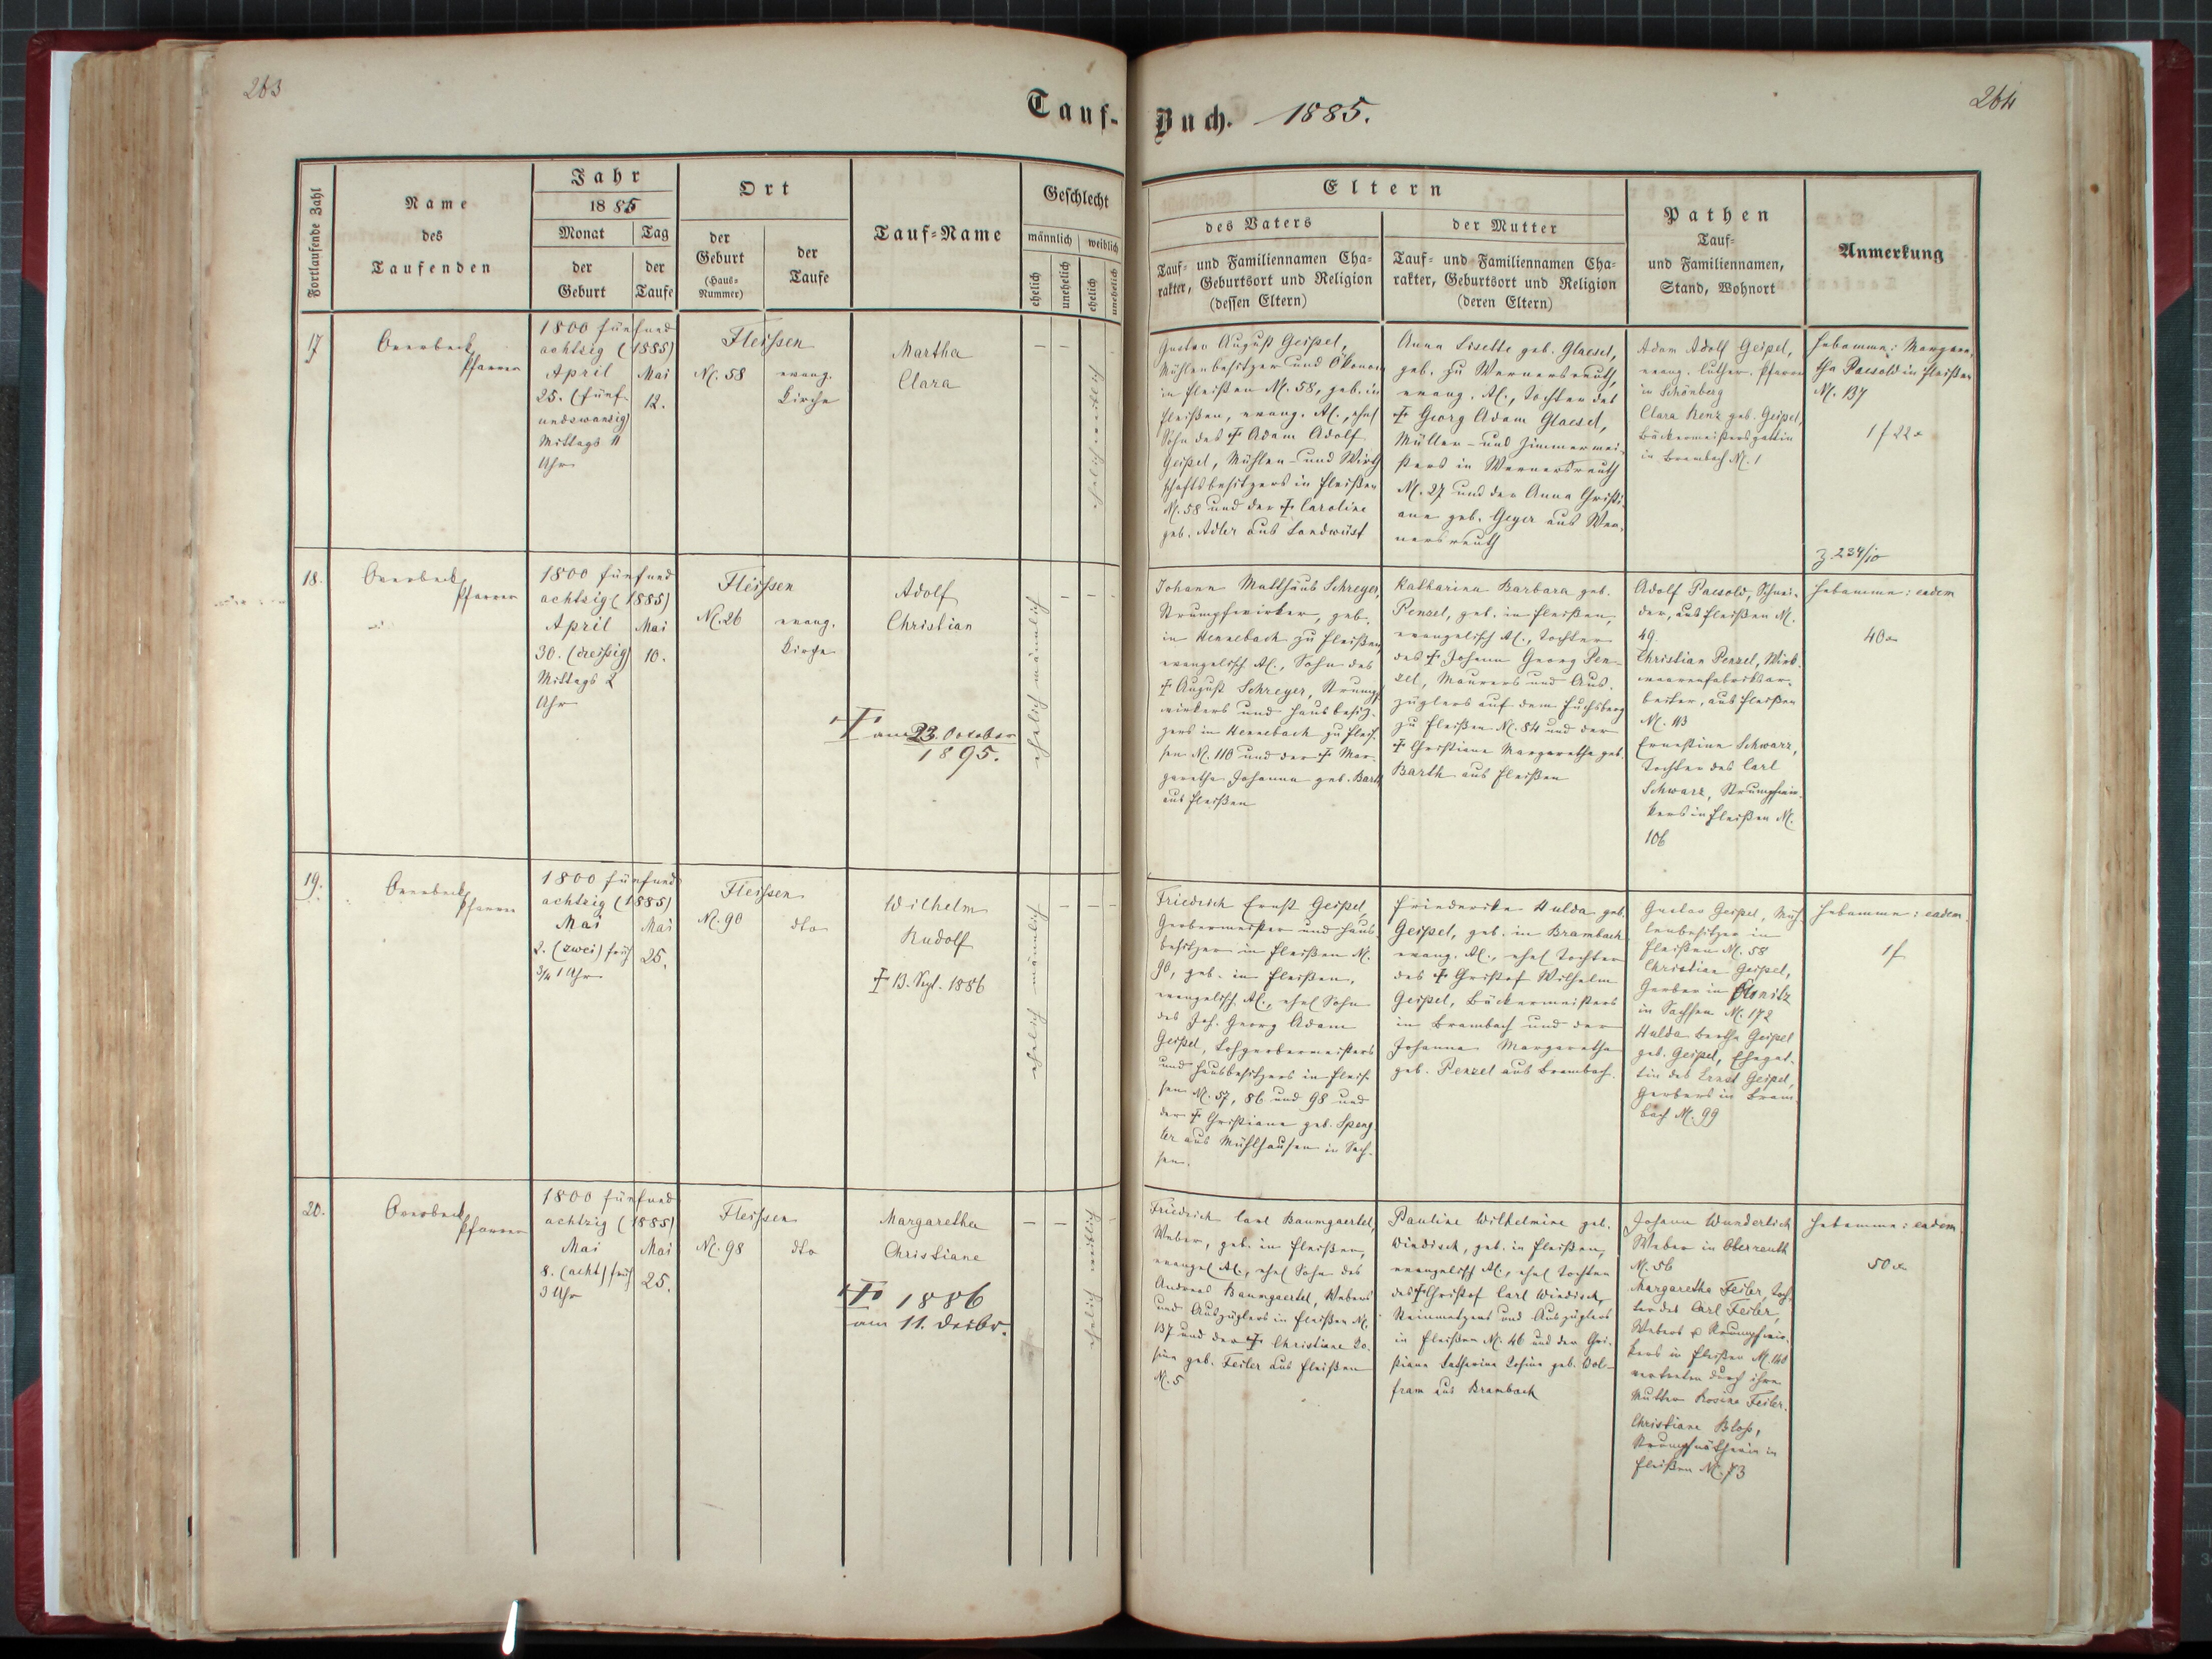 263
264
Tauf-
Buch. 1885.
Fortlaufende Zahl
Name
des
Taufenden
Jahr
1885
Monat
der
Geburt
Tag
der
Taufe
Ort
der
Geburt
(Haus-
Nummer)
der
Taufe
Tauf-Name
Geschlecht
männlich
weiblich
ehelich
unehelich
ehelich
unehelich
Eltern
des Vaters
Tauf- und Familiennamen Cha-
rakter, Geburtsort und Religion
(dessen Eltern)
der Mutter
Tauf- und Familiennamen Cha-
rakter, Geburtsort und Religion
(deren Eltern)
Pathen
Tauf-
und Familiennamen,
Stand, Wohnort
Anmerkung
17
Overbeck
Pfarrer
1800 fünfund
achtzig (1885)
April
25. (fünf-
undzwanzig)
Mittags 11
Uhr
Mai
12.
Fleissen
N. 58
evang.
Kirche
Martha
Clara
ehelich weiblich
Gustav August Geipel,
Mühlenbesitzer und Ökonom
in Fleißen N. 58, geb. in
Fleißen, evang. AC., ehel
Sohn des † Adam Adolf
Geipel, Mühlen- und Wirth
schaftsbesitzers in Fleißen
N. 58 und der † Caroline
geb. Adler aus Landwüst
Anna Lisette geb. Glaesel,
geb. zu Wernersreuth,
evang. AC., Tochter des
† Georg Adam Glaesel,
Müller- und Zimmermei-
sters in Wernersreuth
N. 27 und der Anna Christi-
ane geb. Geyer aus Wer-
nersreuth
Adam Adolf Geipel,
evang. luther. Pfarrer
in Schönberg
Clara Renz geb. Geipel,
Bäckermeistersgattin
in Brambach N. 1
Hebamme: Margare-
tha Paesold in Fleißen
N. 137
1 f 22 x
Z 234/10
18.
Overbeck
Pfarrer
1800 fünfund
achtzig (1885)
April
30. (dreißig)
Mittags 2
Uhr
Mai
10.
Fleissen
N. 26
evang.
Kirche
Adolf
Christian
† am 23. October
1895.
ehelich männlich
Johann Matthäus Schreyer,
Strumpfwirker, geb.
in Hennebach zu Fleißen,
evangelisch AC., Sohn des
† August Schreyer, Strumpf
wirkers und Hausbesit-
zers in Hennebach zu Fleis-
sen N. 110 und der † Mar-
garetha Johanna geb. Barth
aus Fleißen
Katharina Barbara geb.
Penzel, geb. in Fleißen,
evangelisch AC., Tochter
des † Johann Georg Pen-
zel, Maurers und Aus-
züglers auf dem Fuchsberg
zu Fleißen N. 84 und der
† Christiane Margaretha geb.
Barth aus Fleißen
Adolf Paesold, Schnei-
der, aus Fleißen N.
49.
Christian Penzel, Wirk-
waarenfabriksar-
beiter, aus Fleißen
N. 113
Ernestine Schwarz,
Tochter des Carl
Schwarz, Strumpfwir-
kers in Fleißen N.
106
Hebamme: eadem
40 x
19.
Overbeck
Pfarrer
1800 fünfund
achtzig (1885)
Mai
2. (zwei) früh
3/4 1 Uhr
Mai
25.
Fleissen
N. 90
dto
Wilhelm
Rudolf
† 13. Sept. 1886
ehelich männlich
Friedrich Ernst Geipel,
Gerbermeister und Haus-
besitzer in Fleißen N.
90, geb. in Fleißen,
evangelisch AC., ehel Sohn
des Joh. Georg Adam
Geipel, Lohgerbermeisters
und Hausbesitzers in Fleis-
sen N. 57, 86 und 98 und
der † Christiane geb. Speng-
ler aus Mühlhausen in Sach-
sen.
Friederike Hulda geb.
Geipel, geb. in Brambach
evang. AC., ehel Tochter
des † Christof Wilhelm
Geipel, Bäckermeisters
in Brambach und der
Johanna Margaretha
geb. Penzel aus Brambach.
Gustav Geipel, Müh-
lenbesitzer in
Fleißen N. 58
Christian Geipel,
Gerber in
in Sachsen N. 172
Hulda Bertha Geipel
geb. Geipel, Ehegat-
tin des Ernst Geipel,
Gerbers in Bram-
bach N. 99
Hebamme: eadem.
1 f
20.
Overbeck
Pfarrer
1800 fünfund
achtzig (1885)
Mai
8. (acht) früh
3 Uhr
Mai
25.
Fleissen
N. 98
dto
Margaretha
Christiane
† 1886
am 11. Dezbr.
ehelich weiblich
Friedrich Carl Baumgaertel,
Weber, geb. in Fleißen,
evangel AC., ehel Sohn des
Andreas Baumgaertel, Webers
und Auszüglers in Fleißen N.
137 und der † Christiane Ro-
sine geb. Feiler aus Fleißen
N. 5
Pauline Wilhelmine geb.
Windisch, geb. in Fleißen,
evangelisch AC., ehel Tochter
des † Christof Carl Windisch,
Steinmetzers und Auszüglers
in Fleißen N. 46 und der Chri-
stiane Katharina Rosine geb. Wol-
fram aus Brambach
Johann Wunderlich
Weber in Oberreuth
N. 56
Margaretha Feiler, Toch-
ter des Carl Feiler,
Webers & Strumpfwir-
kers in Fleißen N. 140
vertreten durch ihre
Mutter Rosine Feiler.
Christiane Bloß,
Strumpfnätherin in
Fleißen N. 73
Hebamme: eadem.
50 x